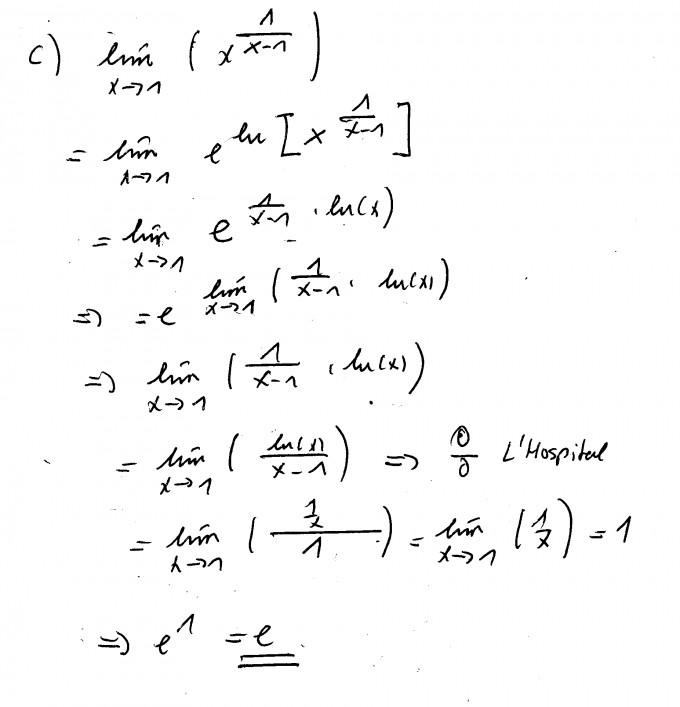 c) lim x→1 ( x^(1/(x-1)) )
= lim x→1 e^(ln [ x^(1/(x-1)) ])
= lim x→1 e^(1/(x-1) · ln(x))
=> = e^(lim x→1 ( 1/(x-1) · ln(x) ))
=> lim x→1 ( 1/(x-1) · ln(x) )
= lim x→1 ( ln(x)/(x-1) ) => 0/0 L'Hospital
= lim x→1 ( (1/x)/1 ) = lim x→1 ( 1/x ) = 1
=> e^1 = e